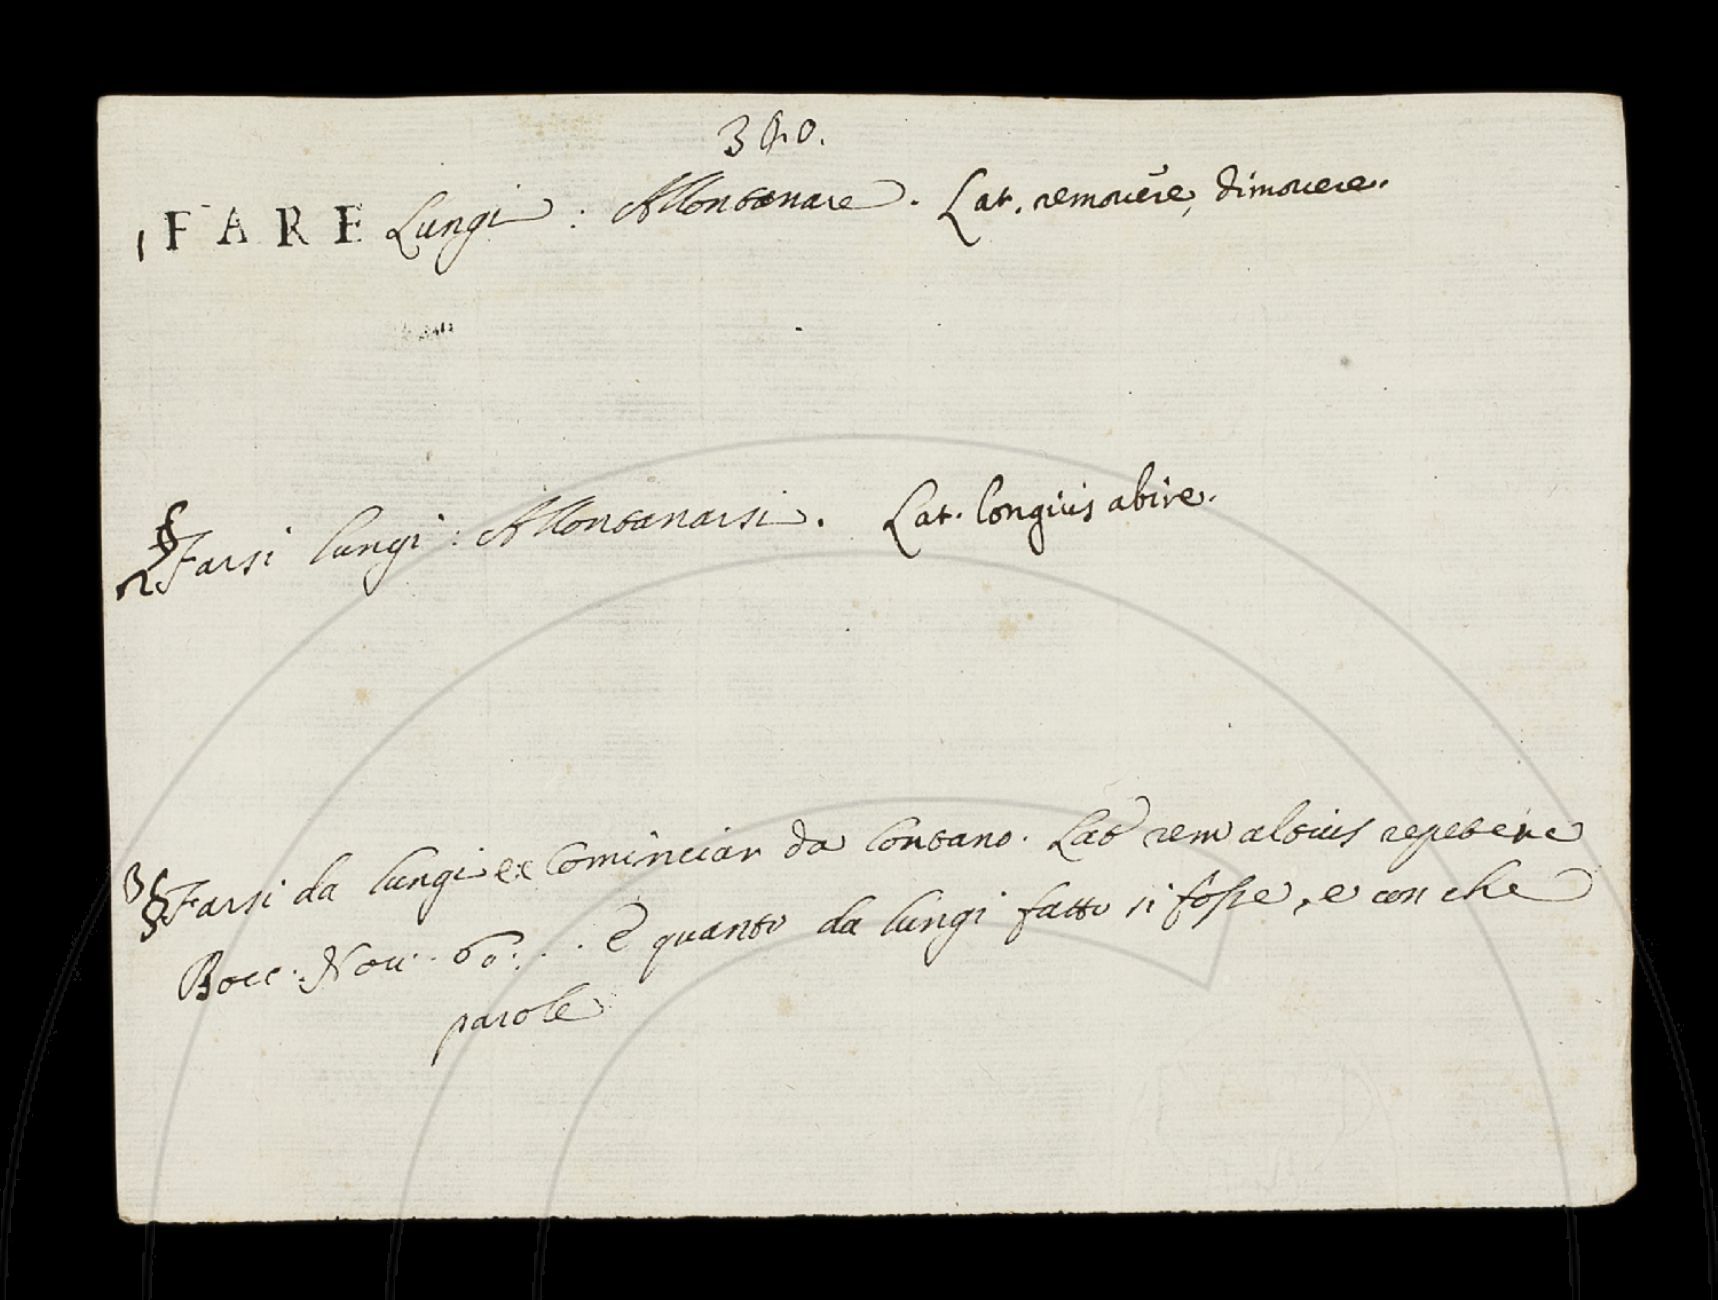 340.
1 FARE Lungi : Allontanare . Lat. removere, dimovere.
§ 2 Farsi lungi : Allontanarsi . Lat. longius abire.
3 § Farsi da lungi è Cominciar da lontano . Lat rem altius repetere
Bocc. Nov. 60. . . E quanto da lungi fatto si fosse, e con che
parole